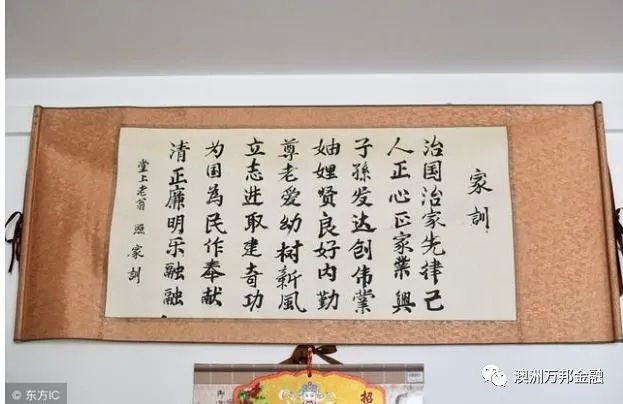 家訓
治国治家先律己
人正心正家業興
子孫发达创伟業
妯娌贤良好内勤
尊老爱幼树新風
立志进取建奇功
为国為民作奉献
清正廉明乐融融
堂上老翁 照 家訓
招
© 东方IC
澳洲万邦金融